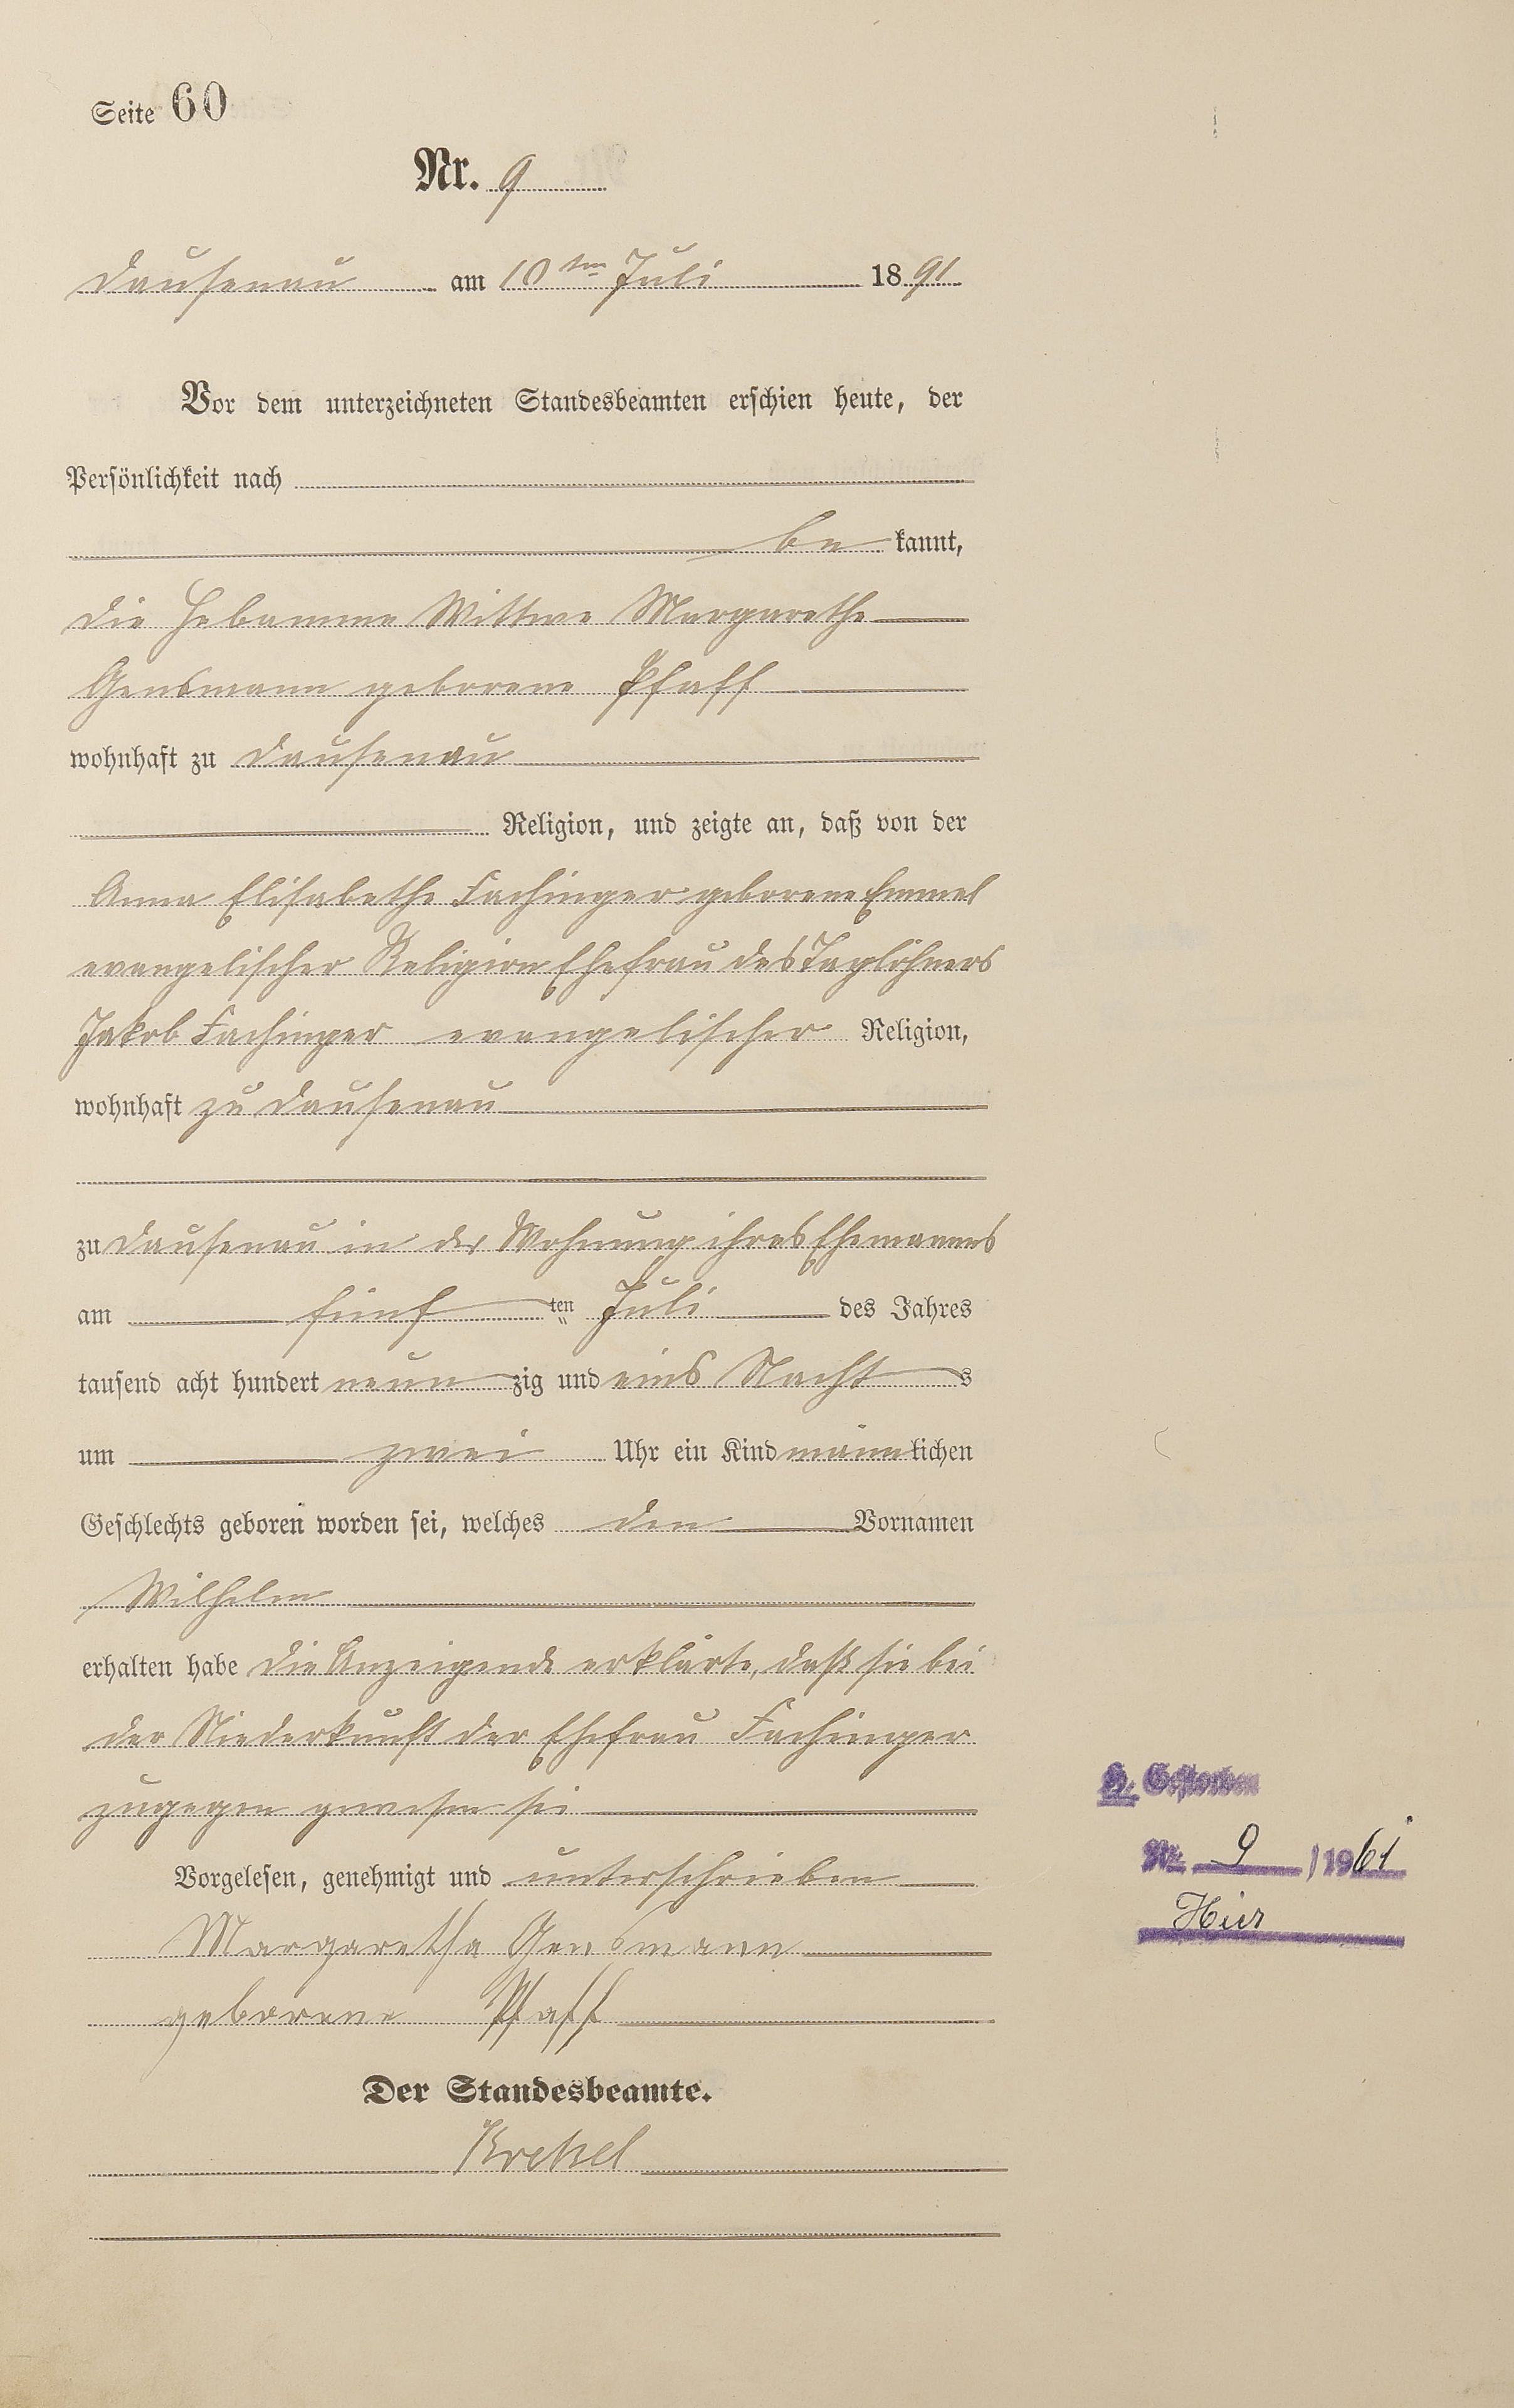 Seite 60
Nr. 9
Dausenau am 10ten Juli 1891
Vor dem unterzeichneten Standesbeamten erschien heute, der
Persönlichkeit nach
be kannt,
die Hebamme Wittwe Margarethe
Gensmann geborene Pfaff
wohnhaft zu Dausenau
Religion, und zeigte an, daß von der
Anna Elisabethe Fachinger geborene Emmel
evangelischer Religion Ehefrau des Taglöhners
Jakob Fachinger evangelischer Religion,
wohnhaft zu Dausenau
zu Dausenau in der Wohnung ihres Ehemannes
am fünf ten Juli des Jahres
tausend acht hundert neun zig und eins Nacht s
um zwei Uhr ein Kind männ lichen
Geschlechts geboren worden sei, welches den Vornamen
Wilhelm
erhalten habe die Anzeigende erklärte, daß sie bei
der Niederkunft der Ehefrau Fachinger
zugegen gewesen sei
Vorgelesen, genehmigt und unterschrieben
Margaretha Gensmann
geborene Pfaff
Der Standesbeamte.
Krekel
H. Gestorben
Nr. 9 / 1961
Hier